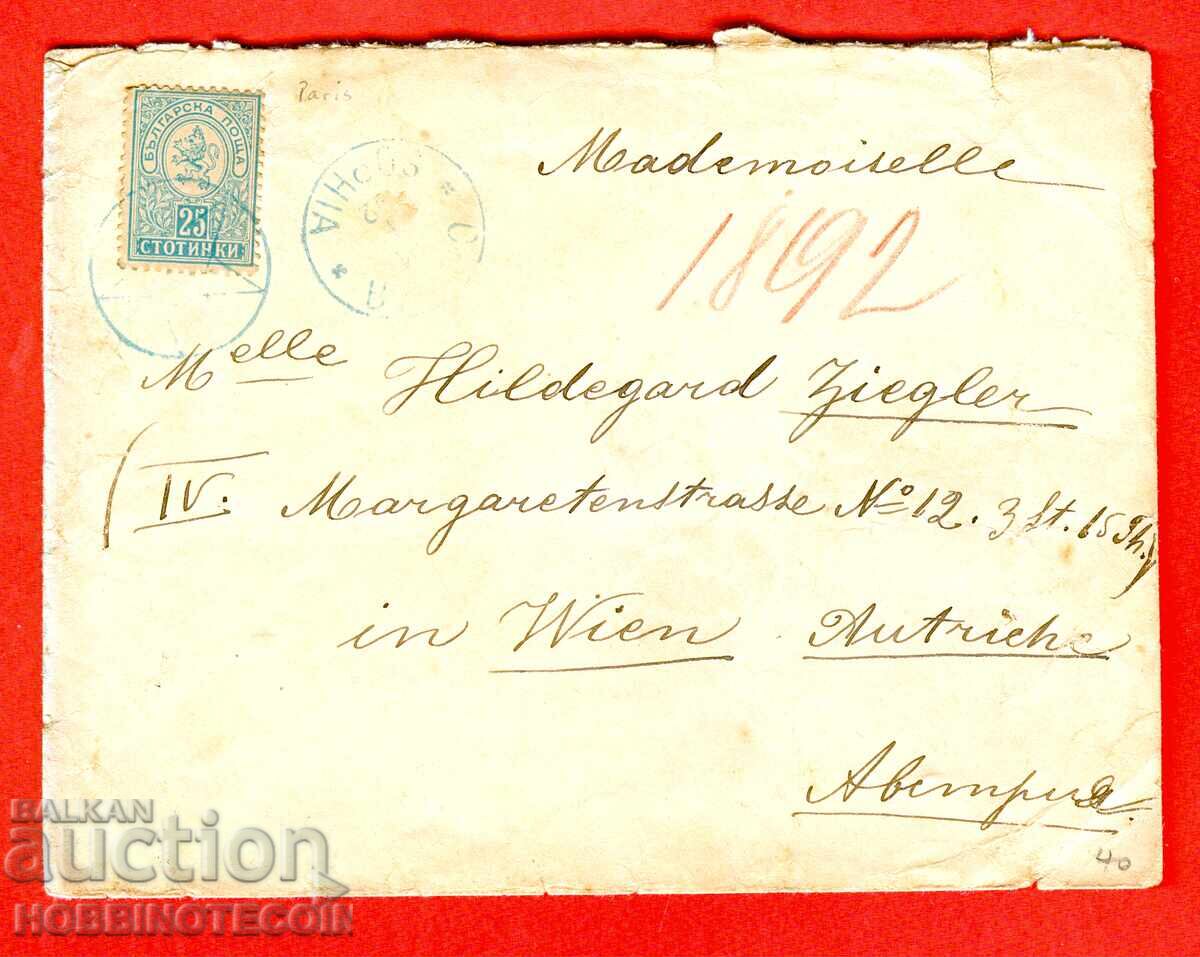 Paris
БЪЛГАРСКА ПОЩА
25
СТОТИНКИ
SOPHIA
Mademoiselle
1892
Melle Hildegard Ziegler
(IV. Margaretenstrasse No 12. 3 St. 15 Th.)
in Wien Autriche
Австрия.
40
BALKAN
auction
HOBBINOTECOIN